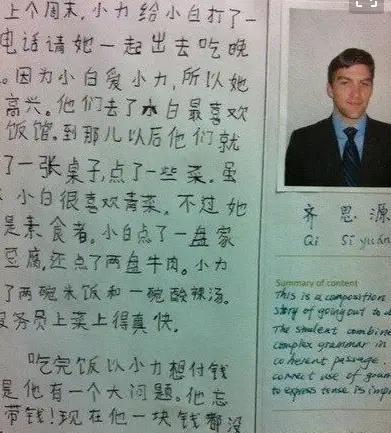 上个周末,小力给小白打了一
电话请她一起出去吃晚
。因为小白爱小力,所以她
高兴。他们去了小白最喜欢
饭馆。到那儿以后他们就
了一张桌子,点了一些菜。虽
小白很喜欢青菜。不过她
是素食者。小白点了一盘家
豆腐,还点了两盘牛肉。小力
了两碗米饭和一碗酸辣汤。
务员上菜上得真快。
吃完饭以小力想付钱
是他有一个大问题。他忘
带钱!现在他一块钱都没
齐思源
Qi Siyuán
Summary of content
This is a composition
story of going out to
The student combine
complex grammar in
coherent passage
correct use of
to express tense is